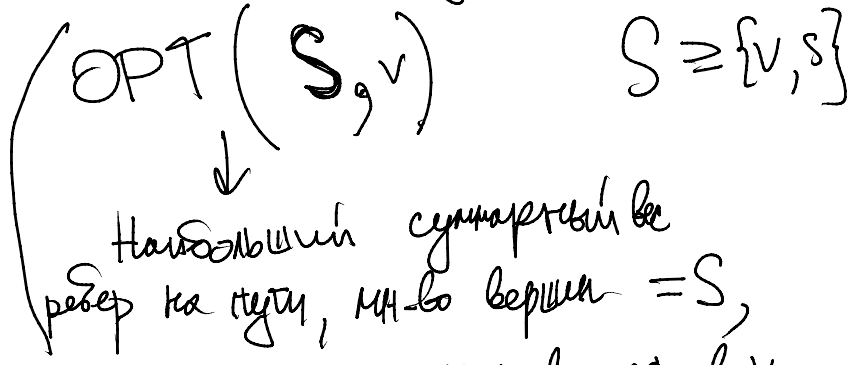 OPT(S, v) S ≥ {v, s}
↓
Наибольший суммарный вес
рёбер на пути, мн-во вершин = S,